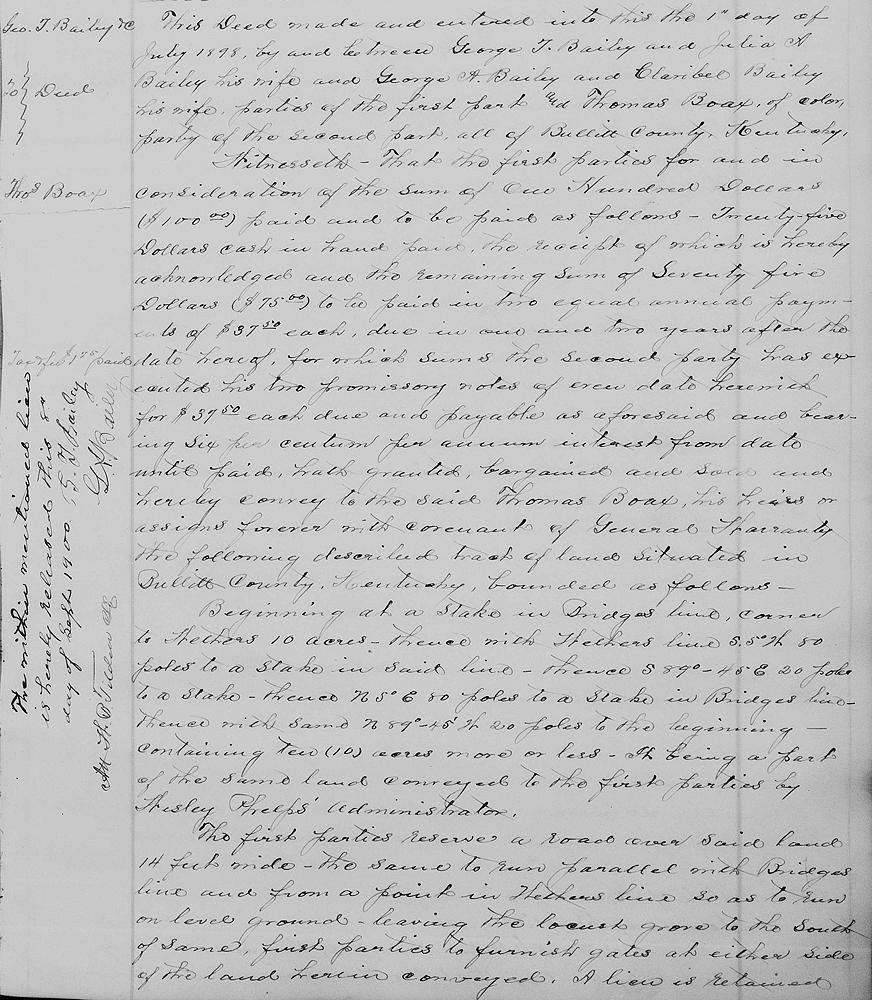 Geo. T. Bailey &c
To } Deed
Thos Boax
This Deed made and entered into this the 1st day of
July 1898, by and between George T. Bailey and Julia A
Bailey his wife and George A. Bailey and Claribel Bailey
his wife, parties of the first part and Thomas Boax, of color,
party of the second part, all of Bullitt County, Kentucky.
Witnesseth - That the first parties for and in
consideration of the sum of One Hundred Dollars
($100 00) paid and to be paid as follows - Twenty-five
Dollars cash in hand paid, the receipt of which is hereby
acknowledged and the remaining sum of Seventy five
Dollars ($75 00) to be paid in two equal annual paym-
ents of $37 50 each, due in one and two years after the
date hereof, for which sums the second party has ex-
ecuted his two promissory notes of even date herewith
for $37 50 each due and payable as aforesaid and bear-
ing six per centum per annum interest from date
until paid, hath granted, bargained and sold and
hereby convey to the said Thomas Boax, his heirs or
assigns forever with covenant of General Warranty
the following described tract of land situated in
Bullitt County, Kentucky, bounded as follows -
Beginning at a stake in Bridges line, corner
to Wethers 10 acres - thence with Wethers line S. 5° W 80
poles to a stake in said line - thence S 89° - 45 E 20 poles
to a stake - thence N 5° E 80 poles to a stake in Bridges line-
thence with same N 89° - 45' W 20 poles to the beginning -
containing ten (10) acres more or less - It being a part
of the same land conveyed to the first parties by
Wesley Phelps' Administrator.
The first parties reserve a road over said land
14 feet wide - the same to run parallel with Bridges
line and from a point in Wethers line so as to run
on level ground - leaving the locust grove to the South
of same, first parties to furnish gates at either side
of the land herein conveyed. A lien is retained
paid
The within mentioned lien
is hereby released this 8th
day of Sept 1900 G. T. Bailey
G A Bailey
Att